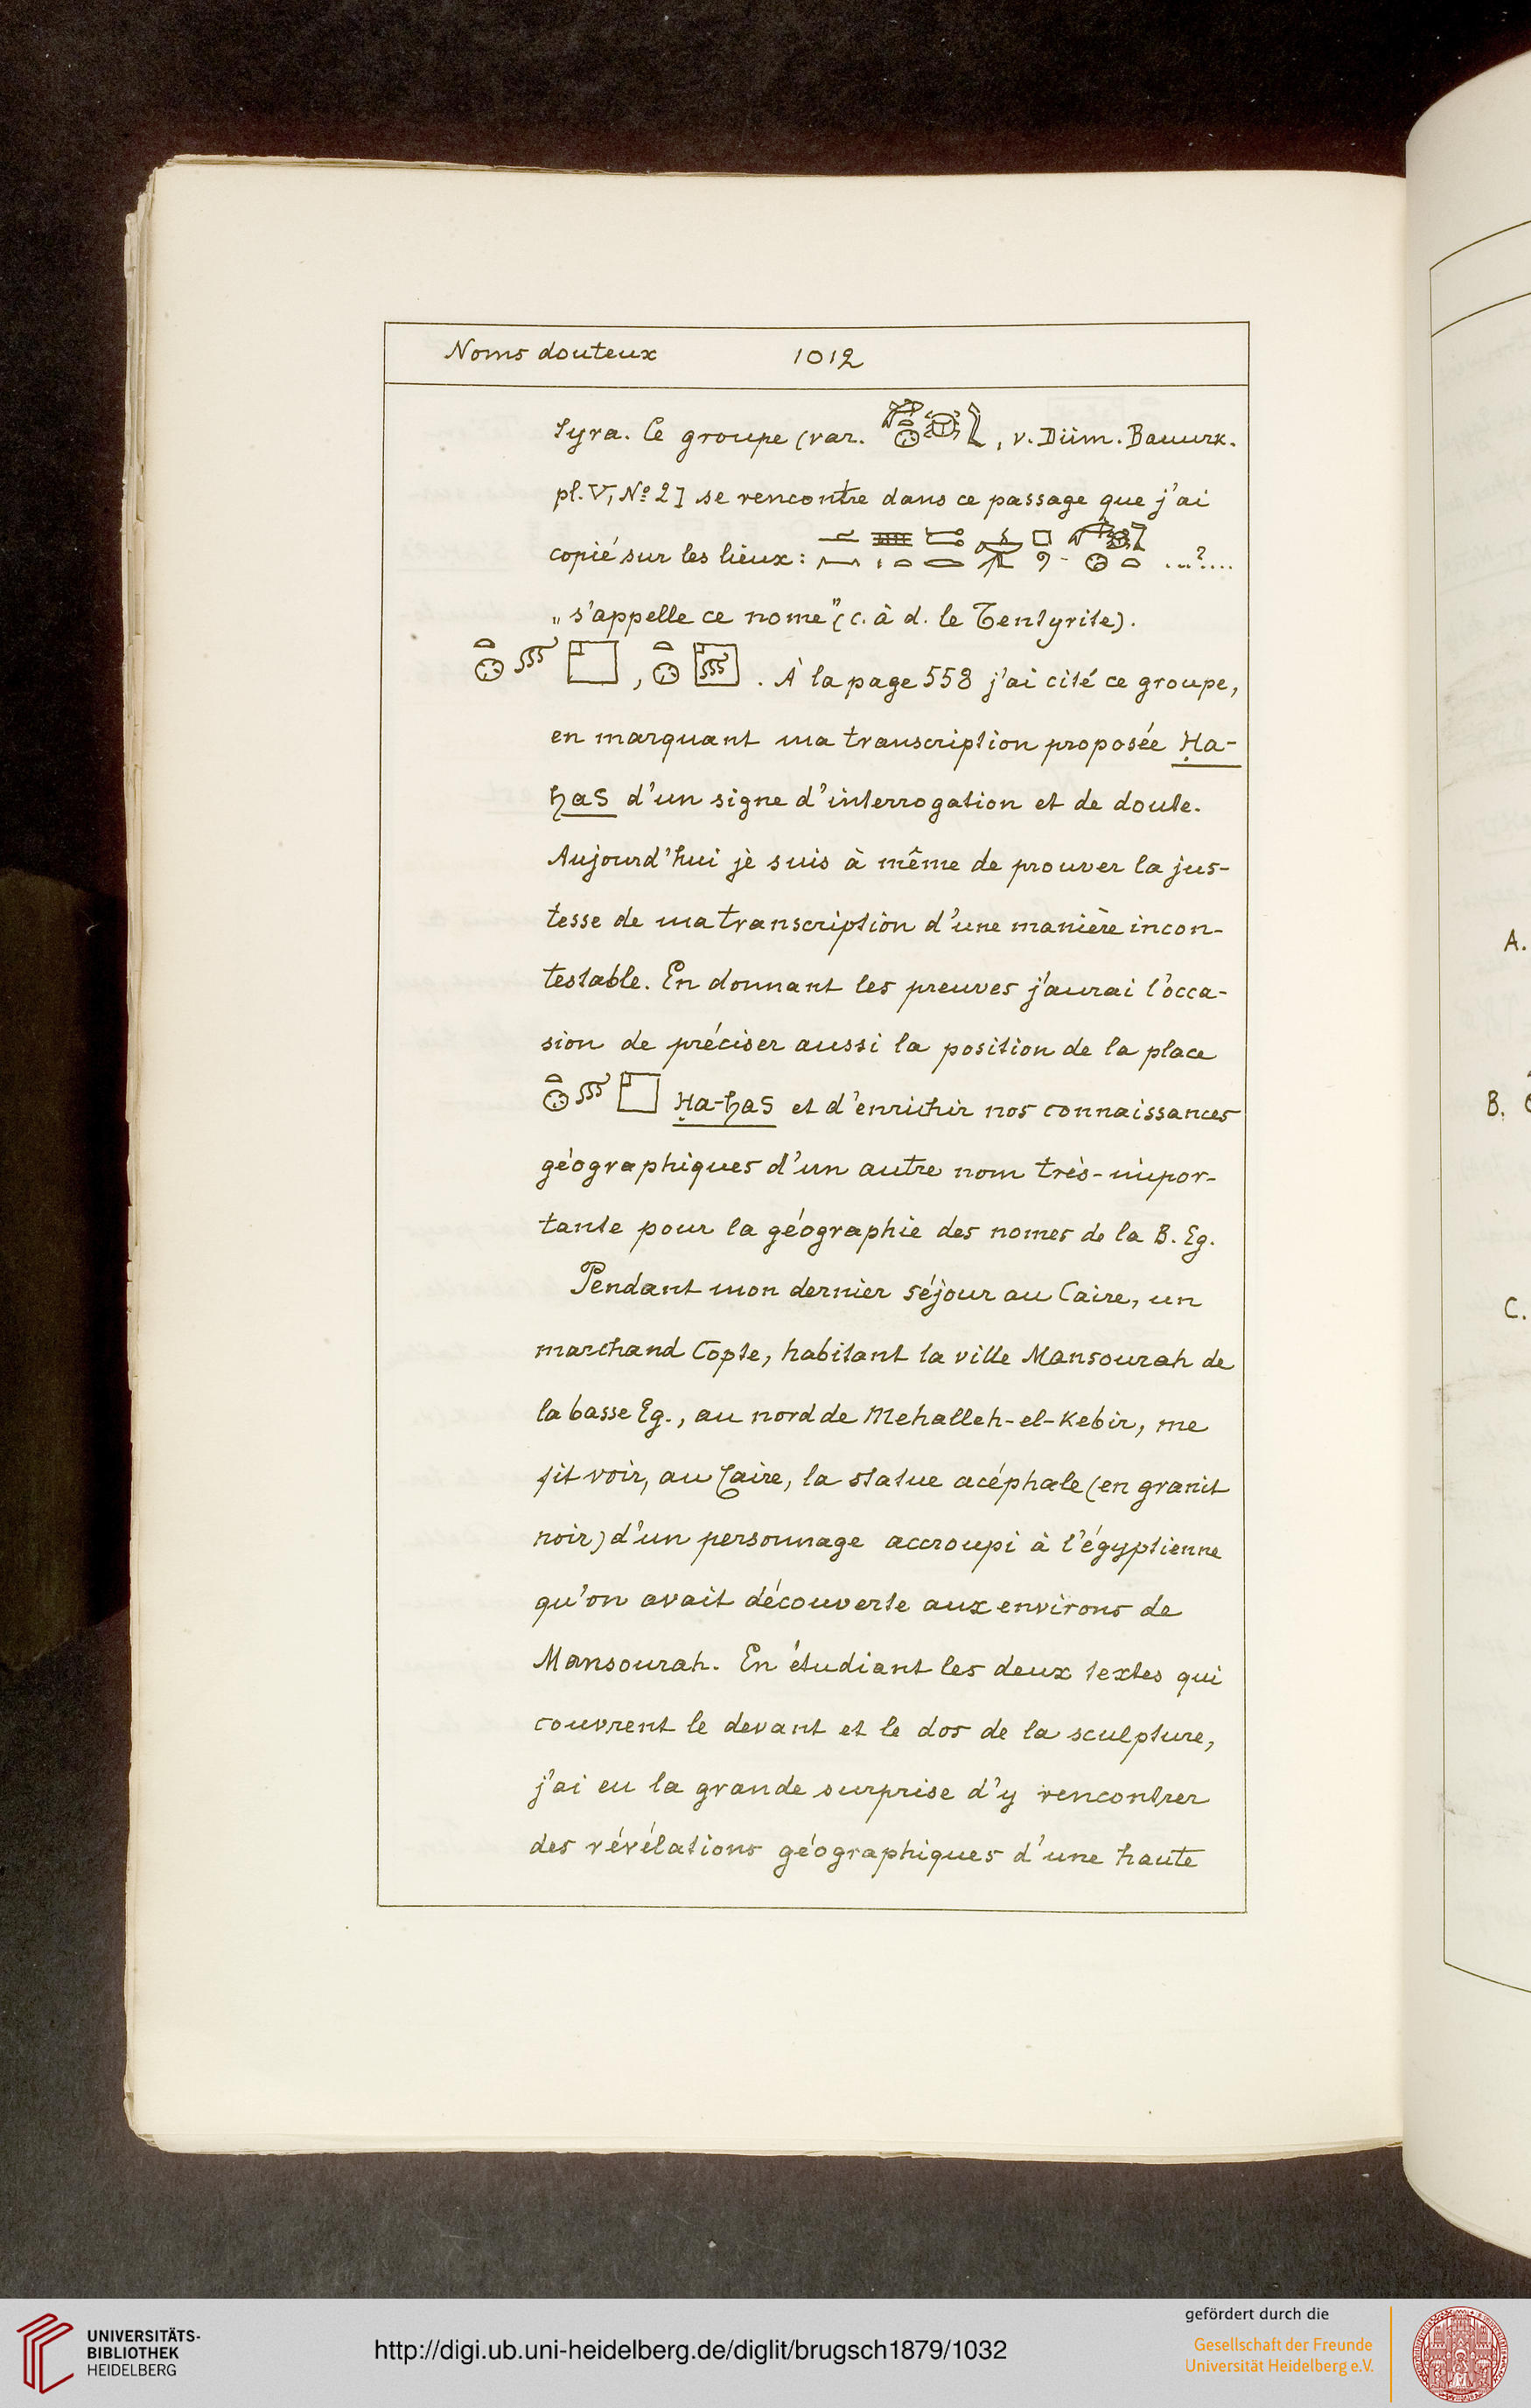 Noms douteux 1012
tyra. Ce groupe (var. , v. Düm. Bauurk.
pl. V, Nº 2] se rencontre dans ce passage que j'ai
copié sur les lieux: ...?....
„s'appelle ce nome" (c. à d. le Tentyrite).
, . À la page 558 j'ai cité ce groupe,
en marquant ma transcription proposée Ḥa-
ḫas d'un signe d'interrogation et de doute.
Aujourd'hui je suis à même de prouver la jus-
tesse de ma transcription d'une manière incon-
testable. En donnant les preuves j'aurai l'occa-
sion de préciser aussi la position de la place
Ḥa-ḫas et d'enrichir nos connaissances
géographiques d'un autre nom très-impor-
tante pour la géographie des nomes de la B. Eg.
Pendant mon dernier séjour au Caire, un
marchand Copte, habitant la ville Mansourah de
la basse Eg., au nord de Mehalleh-el-Kebir, me
fit voir, au Caire, la statue acéphale (en granit
noir) d'un personnage accroupi à l'égyptienne
qu'on avait découverte aux environs de
Mansourah. En étudiant les deux textes qui
couvrent le devant et le dos de la sculpture,
j'ai eu la grande surprise d'y rencontrer
des révélations géographiques d'une haute
A.
B.
C.
UNIVERSITÄTS-
BIBLIOTHEK
HEIDELBERG
http://digi.ub.uni-heidelberg.de/diglit/brugsch1879/1032
gefördert durch die
Gesellschaft der Freunde
Universität Heidelberg e.V.